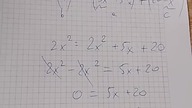 2x² = 2x² + 5x + 20
2x² - 2x² = 5x + 20
0 = 5x + 20